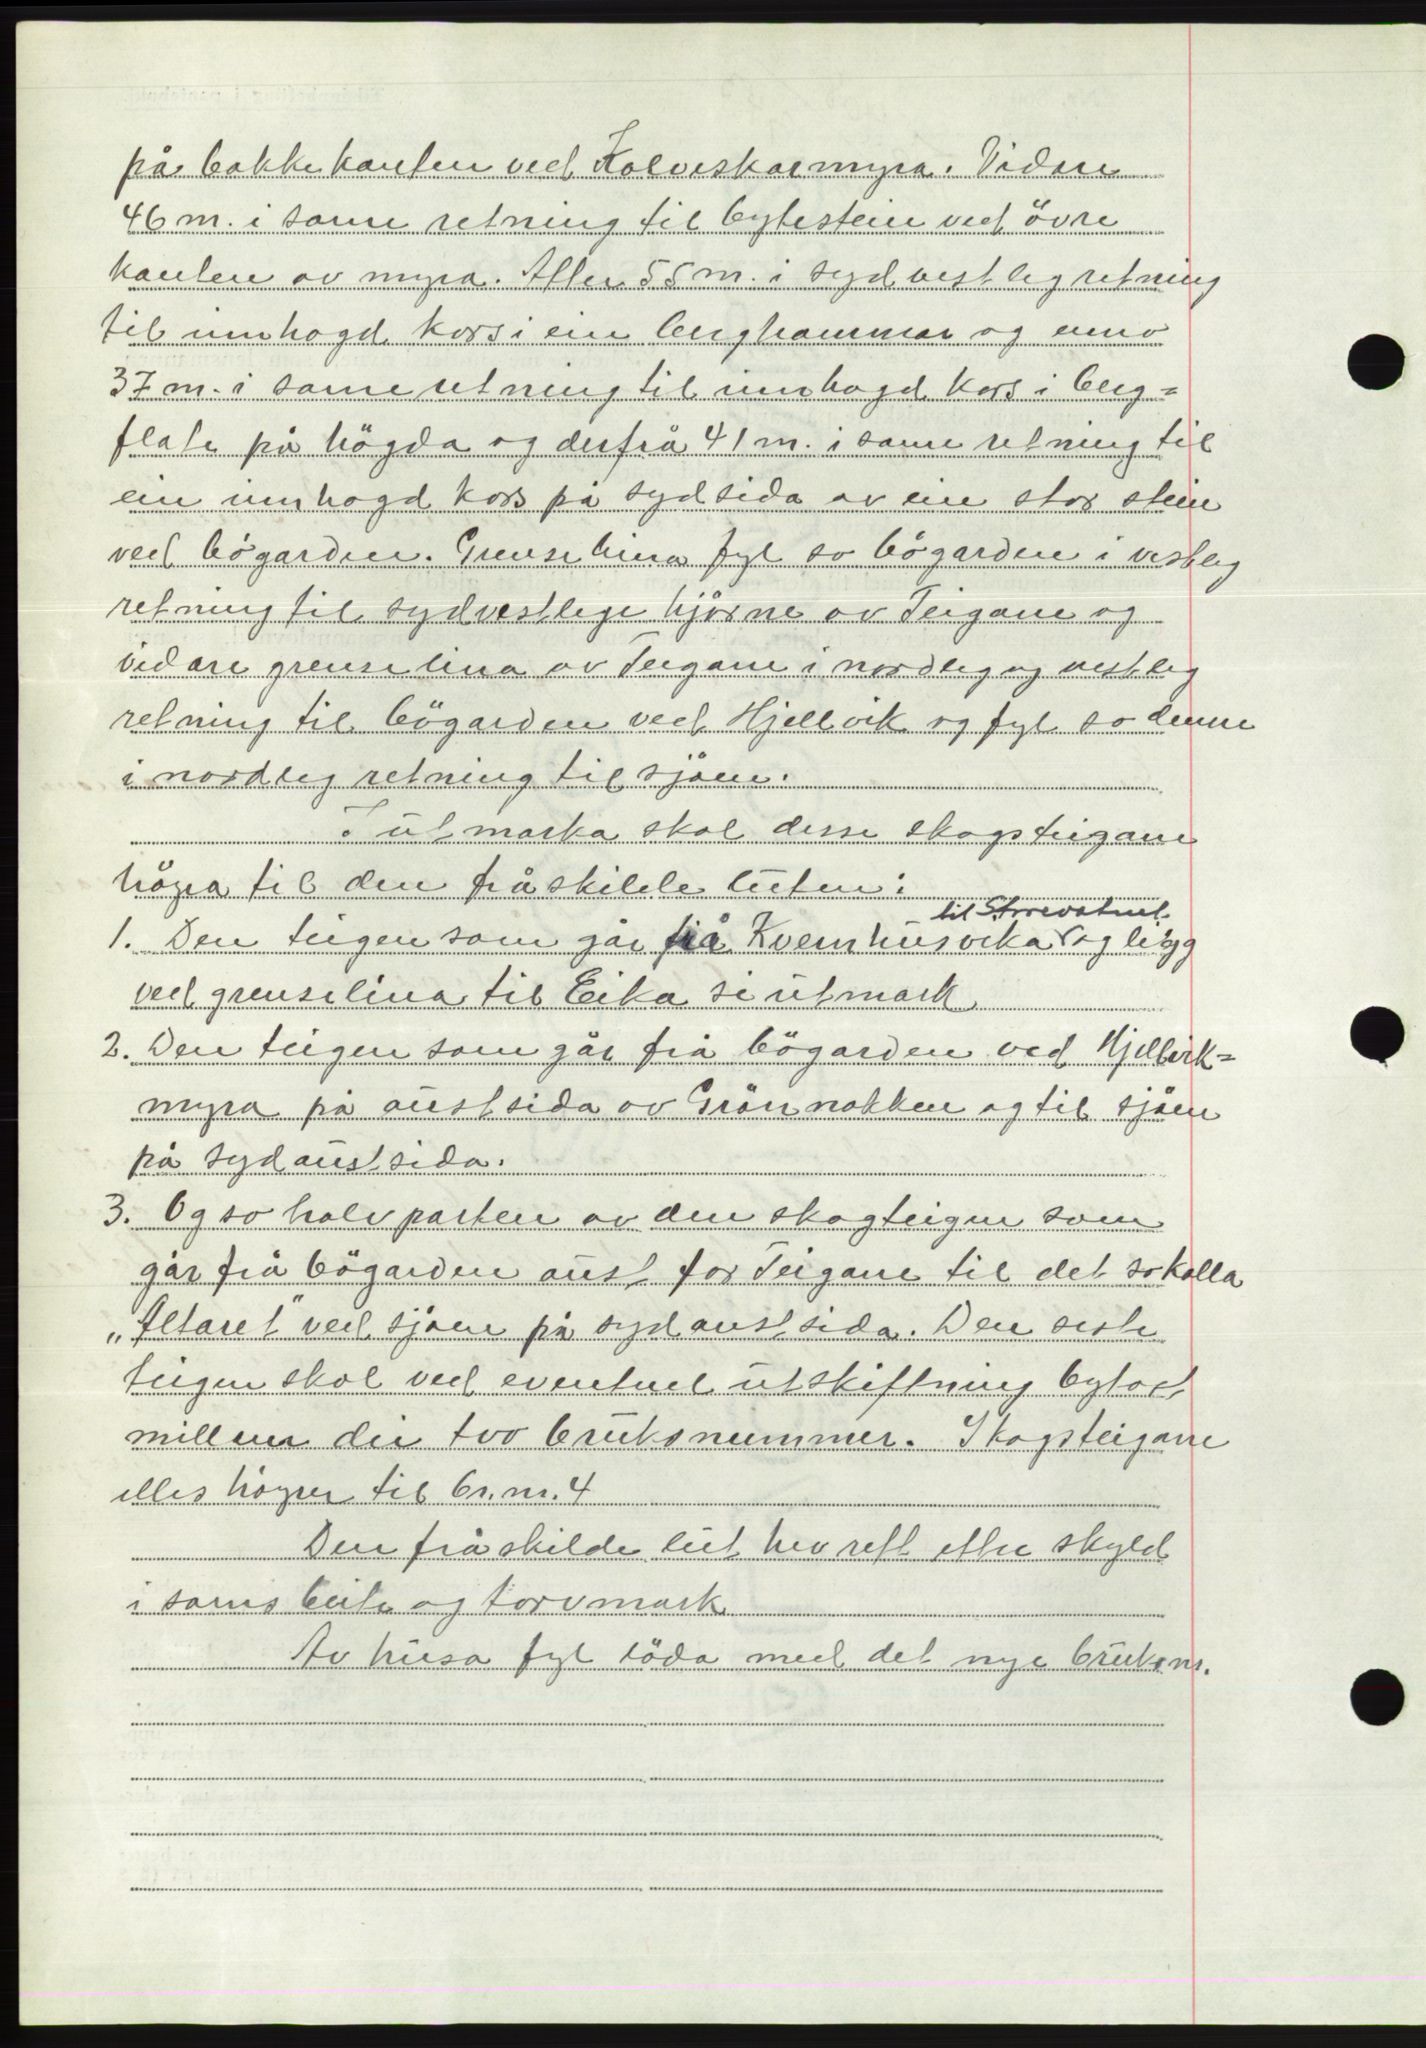 på bakkekanten ved Kalveskarmyra. Vidare
46 m. i same retning til bytestein ved övre
kanten av myra. Atter 55 m. i sydvestleg retning
til innhogd kors i ein berghammar og enno
37 m. i same retning til innhogd kors i berg=
flate på högda og derfrå 41 m. i same retning til
ein innhogd kors på sydsida av ein stor stein
ved bögarden. Grenselina fyl so bögarden i vestleg
retning til sydvestlege hjörne av Teigane og
vidare grenselina av Teigane i nordleg og vestleg
retning til bögarden ved Hjellvik og fyl so denne
i nordleg retning til sjöen.
I utmarka skal desse skogsteigane
höyra til den fråskilde luten:
1. Den teigen som går frå Kvernhusvika til Storevatnet og ligg
ved grenselina til Eika si utmark
2. Den teigen som går frå bögarden ved Hjellvik=
myra på austsida av Grönnakken og til sjöen
på sydaustsida.
3. Og so halvparten av den skogteigen som
går frå bögarden aust for Teigane til det sokalla
„Altaret" ved sjöen på sydaustsida. Den siste
teigen skal ved eventuel utskiftning bytast
millom dei two bruksnummer. Skogsteigane
elles höyrer til br.nr. 4
Den fråskilde lut hev rett etter skyld
i sams beite og torvmark
Av husa fyl löda med det nye bruksnr.